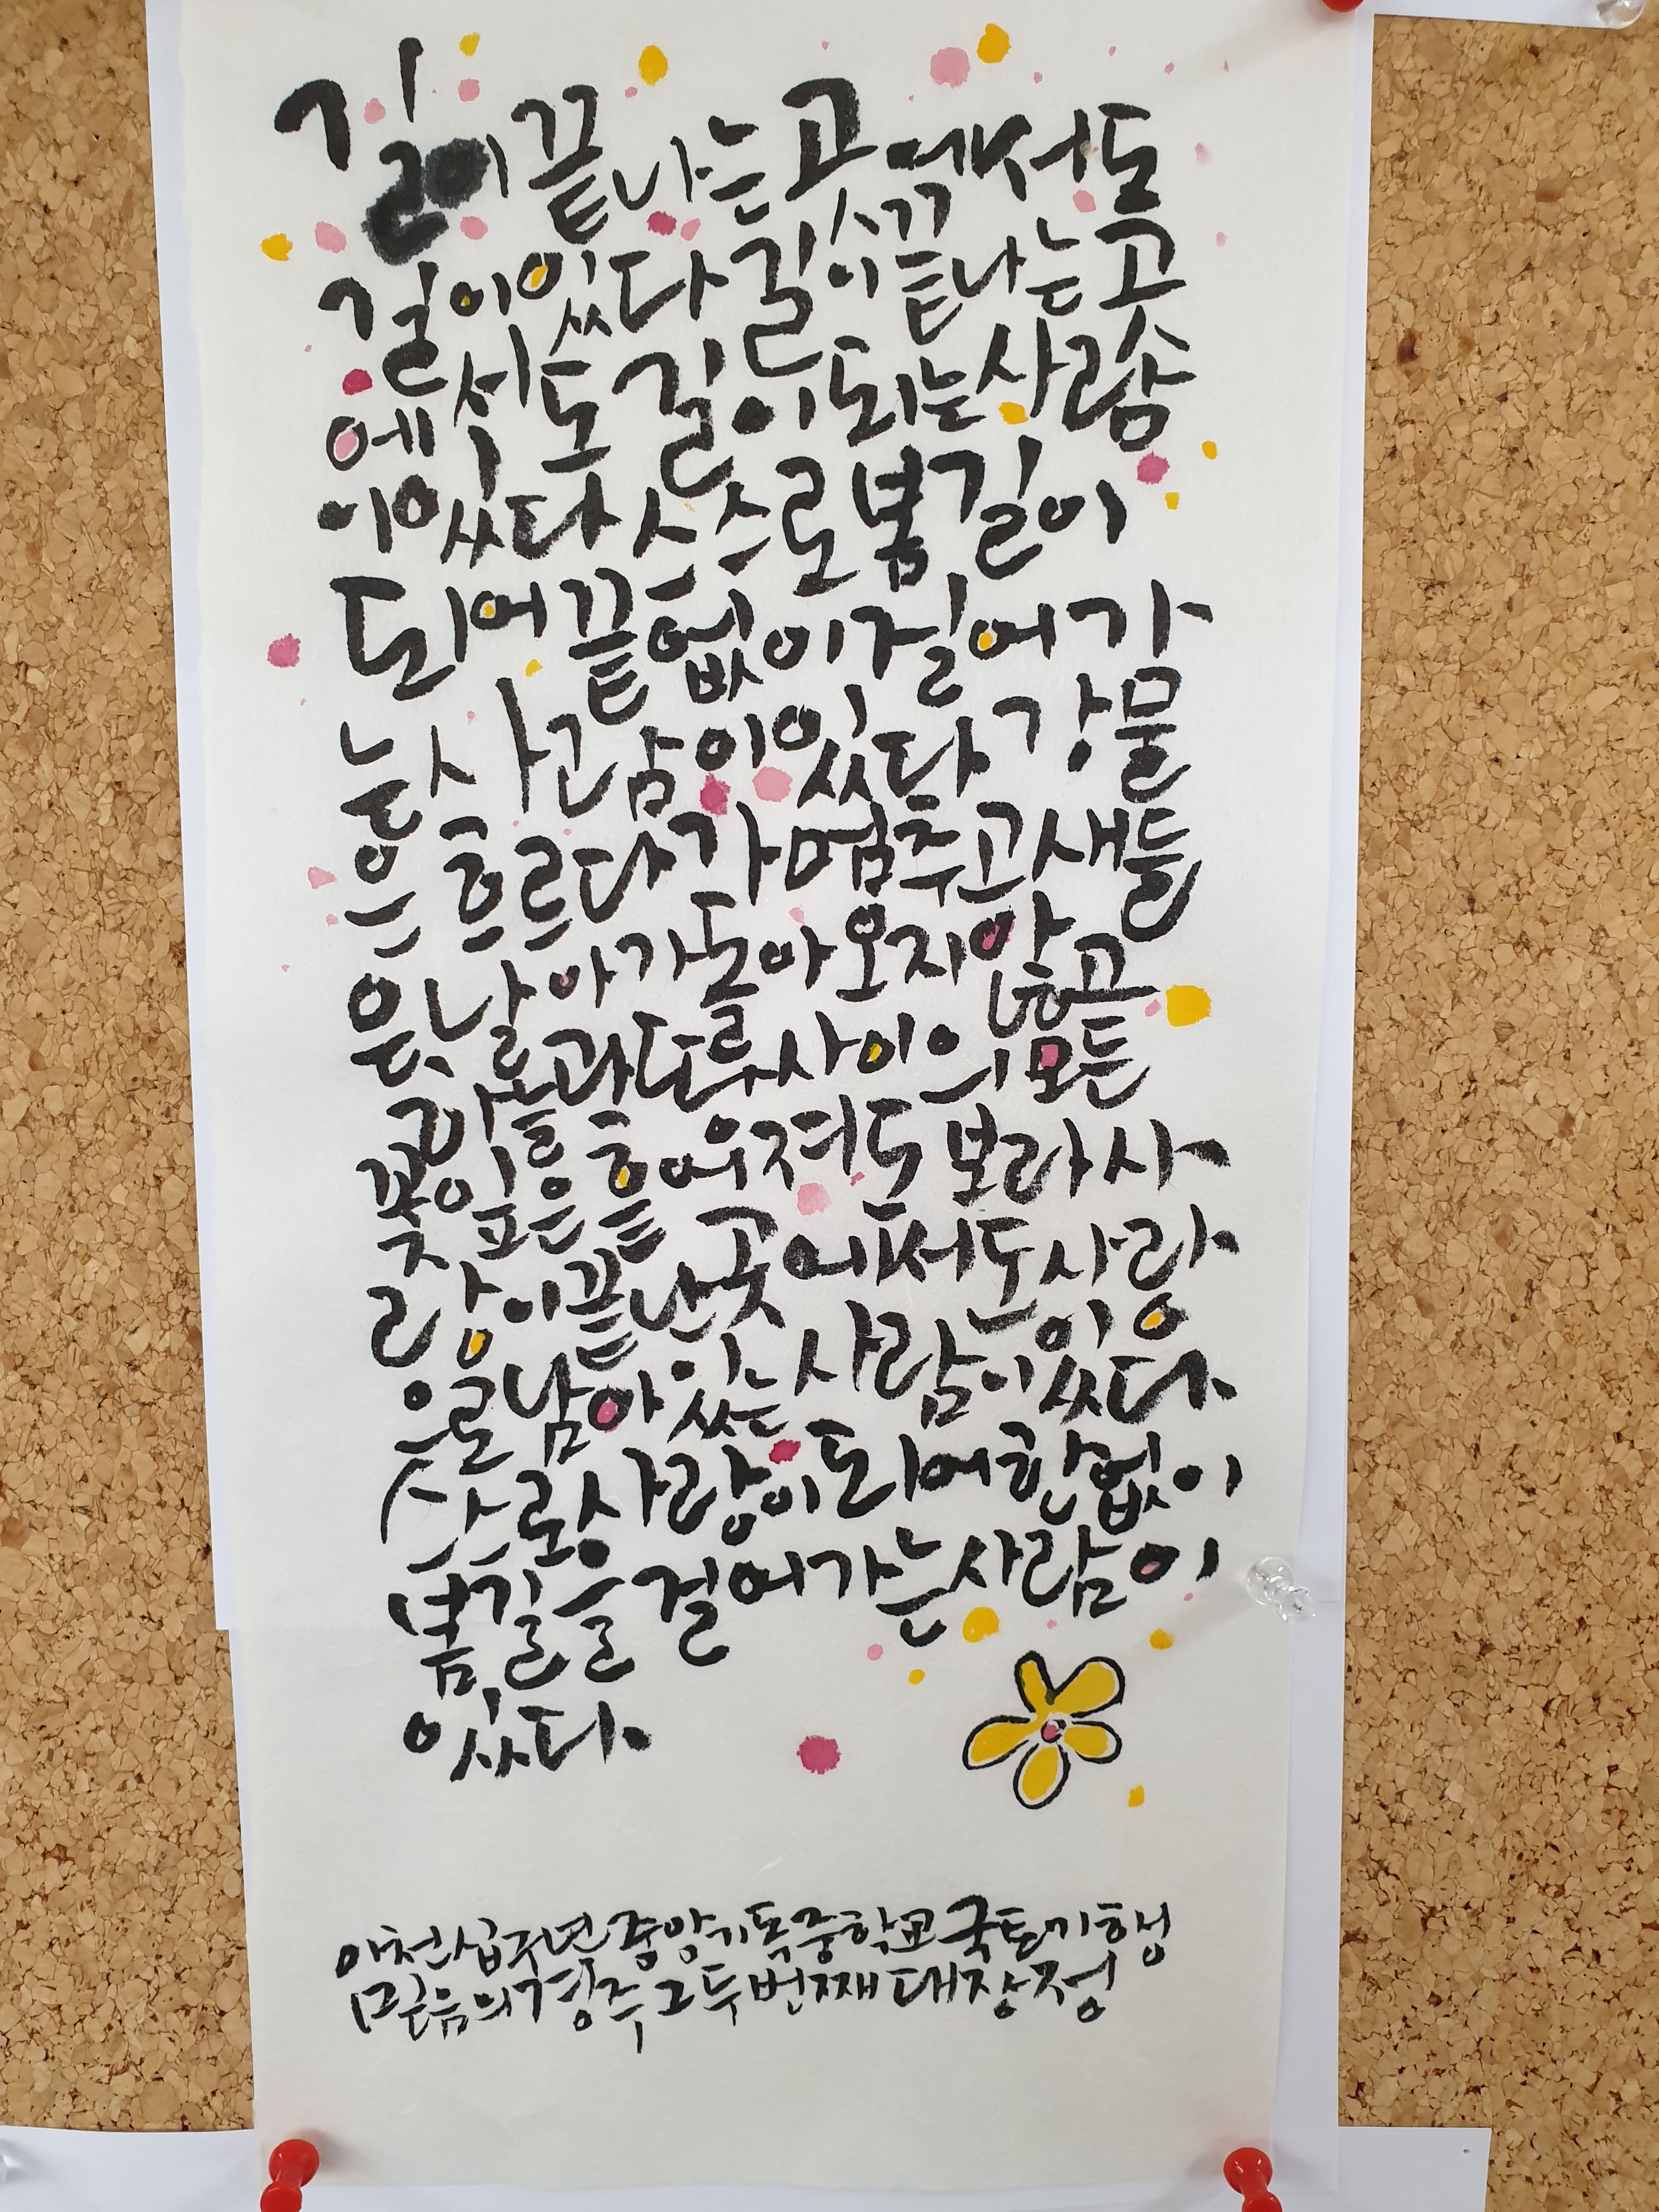 길이 끝나는 곳에서도
길이 있다 길이 끝나는 곳
에서도 길이 되는 사람
이 있다 스스로 봄길이
되어 끝없이 걸어가
는 사람이 있다 강물
은 흐르다가 멈추고 새들
은 날아가 돌아오지 않고
하늘과 땅 사이의 모든
꽃잎은 흩어져도 보라 사
랑이 끝난 곳에서도 사랑
으로 남아 있는 사람이 있다.
스스로 사랑이 되어 한없이
봄길을 걸어가는 사람이
있다.
이천십구년 중앙기독중학교 국토기행
믿음의 경주 그 두번째 대장정